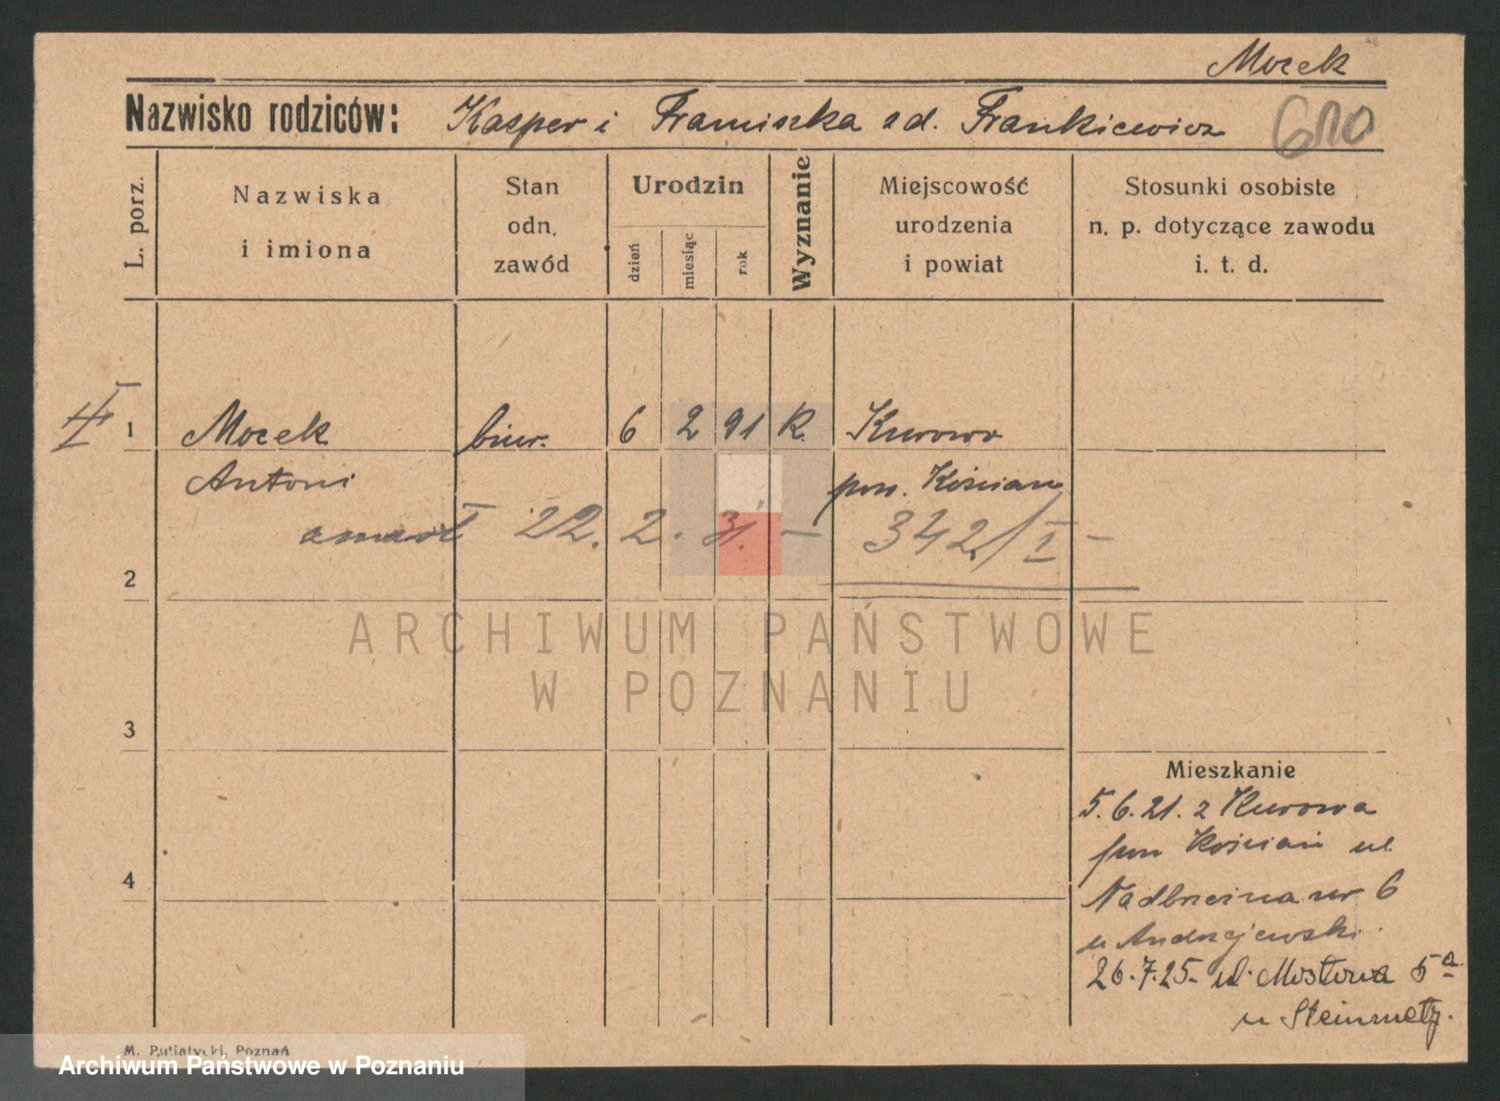 Mocek
Nazwisko rodziców: Kasper i Franciszka z d. Frankiewicz 610
L. porz.
Nazwiska
i imiona
Stan
odn.
zawód
Urodzin
dzień
miesiąc
rok
Wyznanie
Miejscowość
urodzenia
i powiat
Stosunki osobiste
n. p. dotyczące zawodu
i. t. d.
1 Mocek biur. 6 2 91 K. Kurowo
Antoni pow. Kościan
zmarł 22. 2. 31. — 342/I —
2
ARCHIWUM PAŃSTWOWE
W POZNANIU
3
Mieszkanie
5.6.21. z Kurowa
pow Kościan ul
4
Nadbrzeżna nr 6
u Andrzejewski.
26.7.25. ul. Mostowa 5a
u Steinmetz.
M. Putiatycki, Poznań
Archiwum Państwowe w Poznaniu